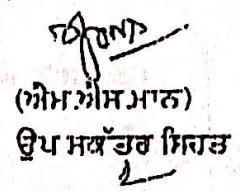 (ਐਮ.ਐਸ.ਮਾਨ)
ਉਪ ਸਕੱਤਰ ਸਿਹਤ